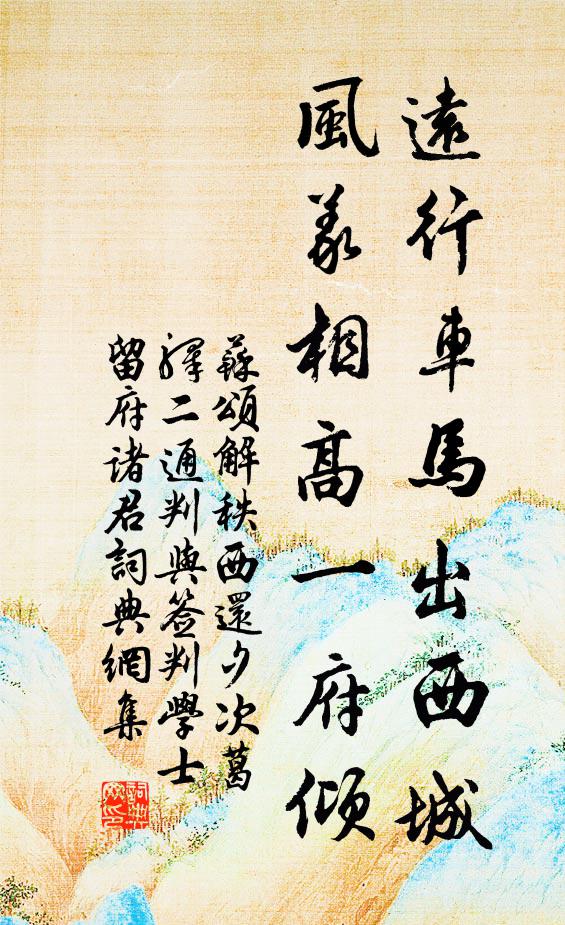 遠行車馬出西城
風義相高一府傾
蘇頌解秩西還夕次葛
驛二通判與簽判學士
留府諸君詞典網集